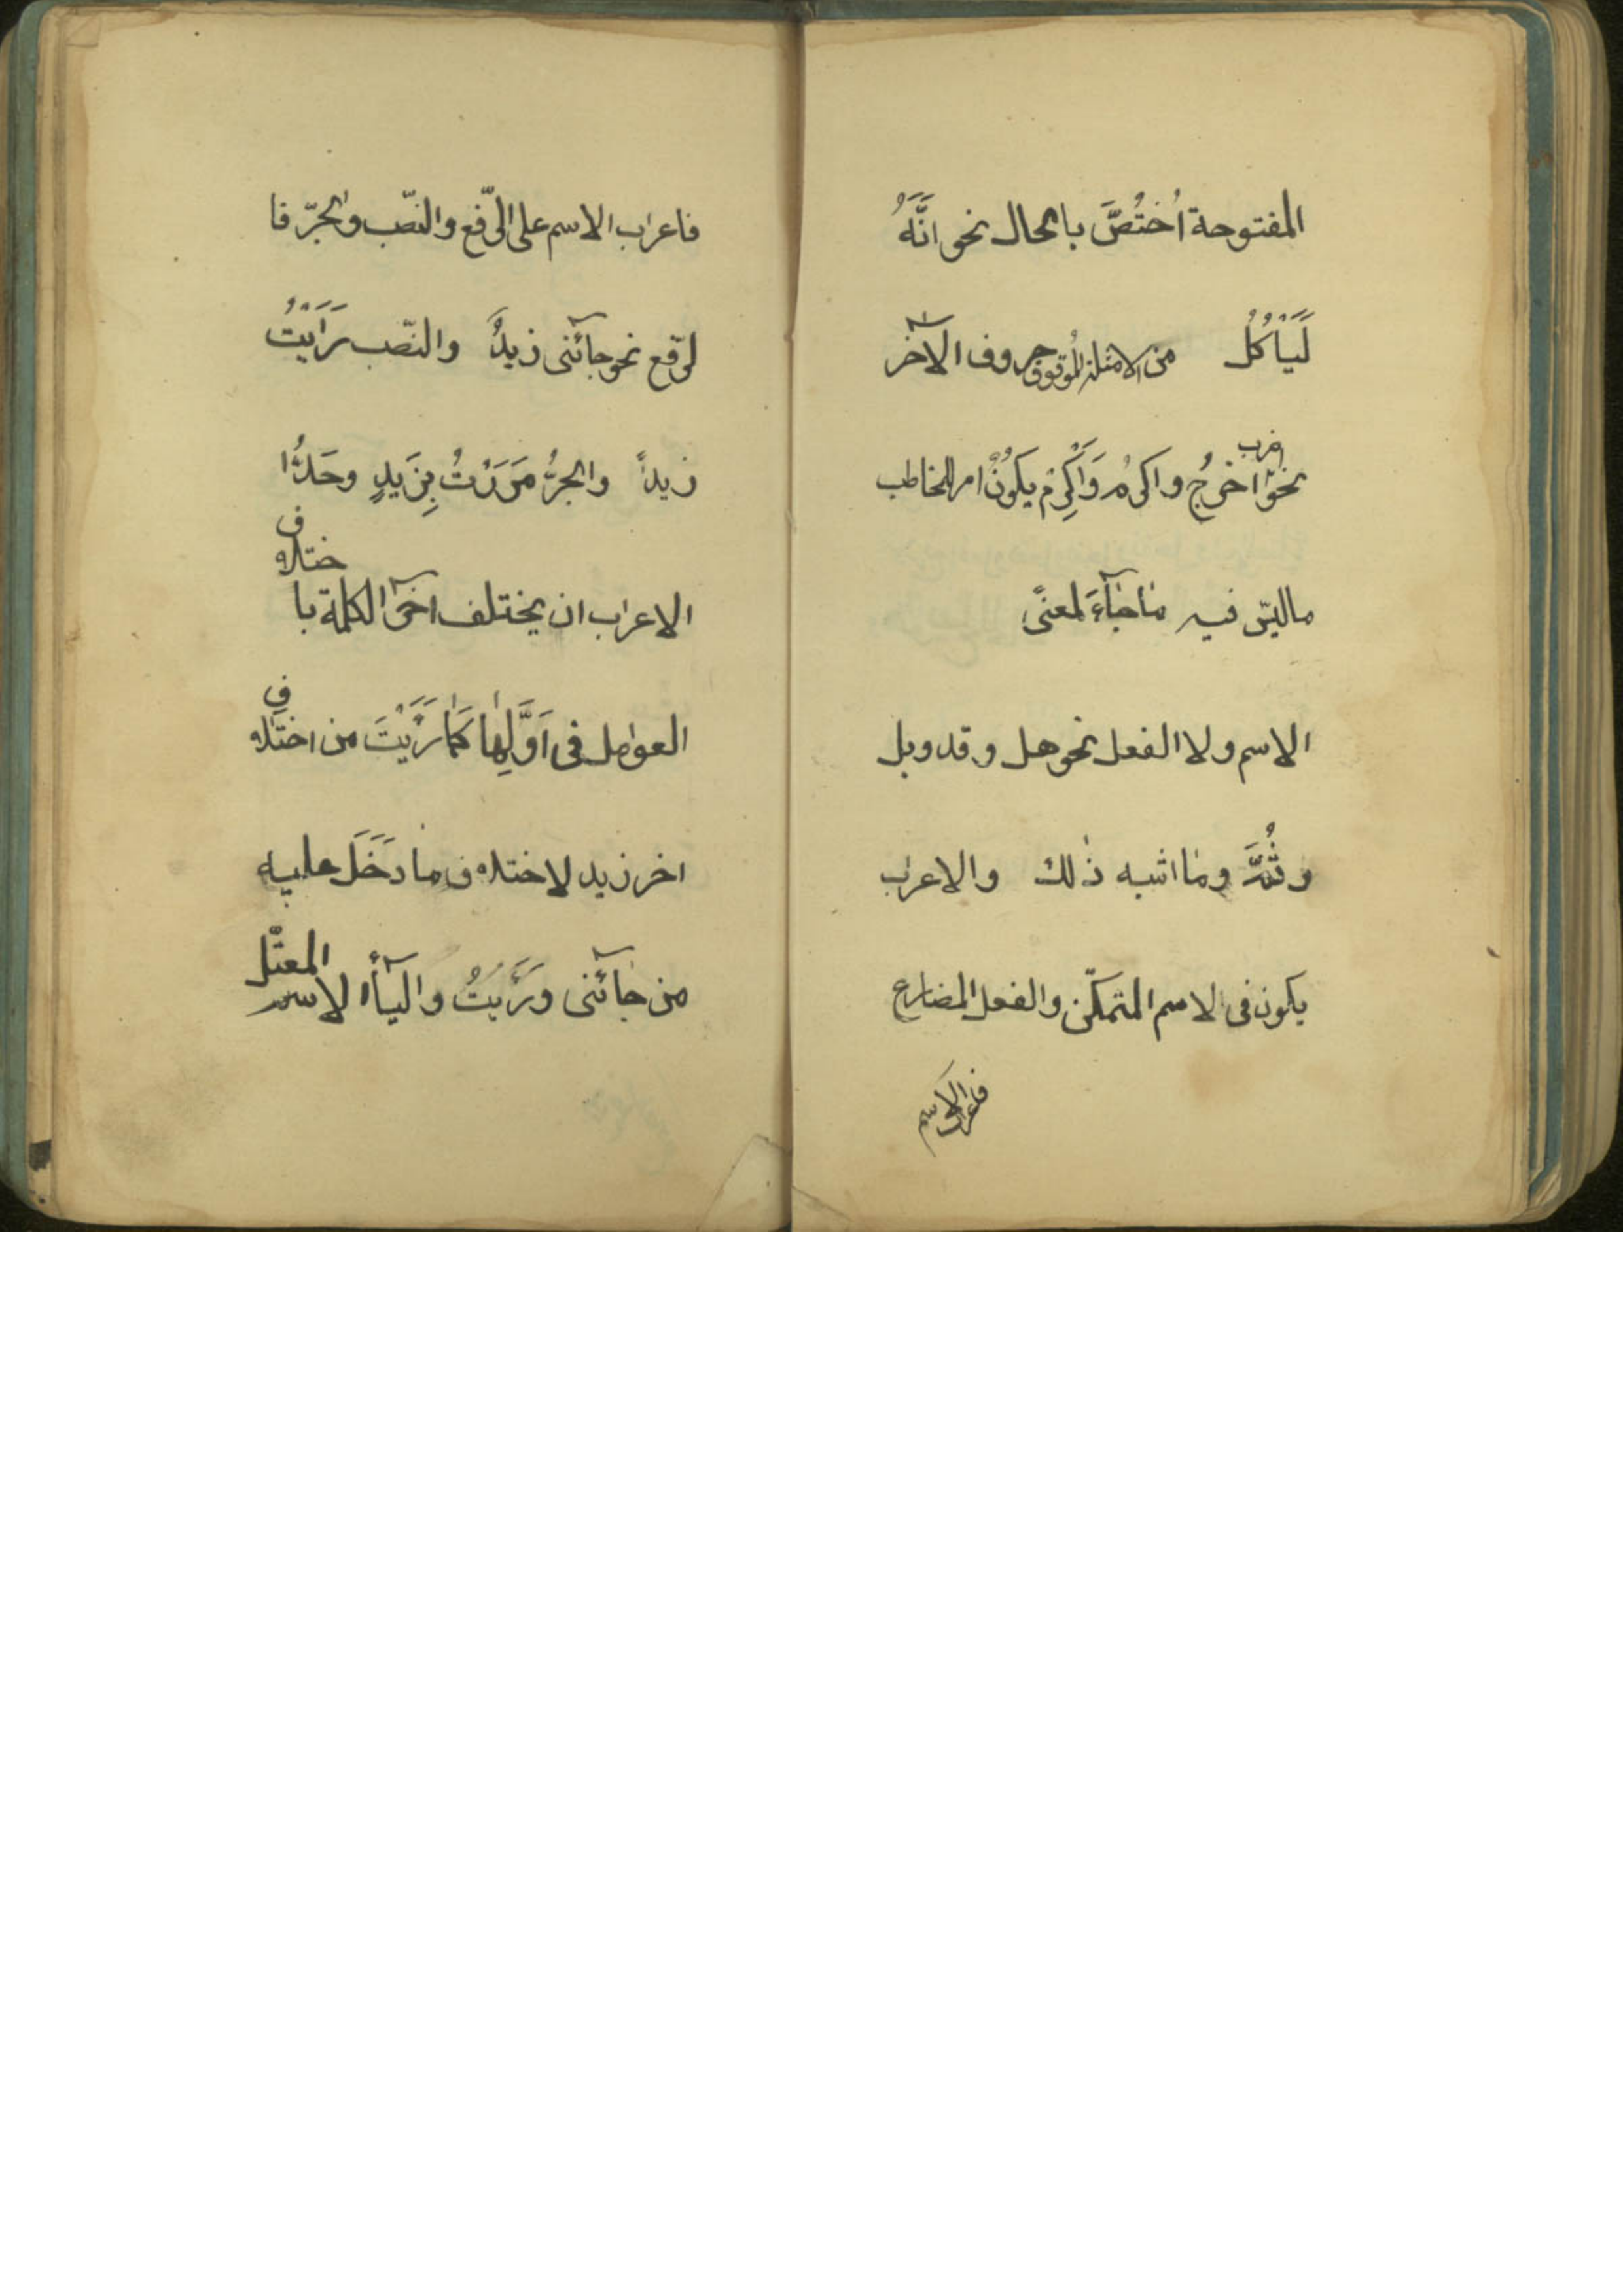 المفتوحة اُخْتُصَّ بالحال نحو انَّهُ
لَيَاْكُلُ من الامثلة الموقوف حروف الآخر
اضرب
نحو اخرُج واكرُم وَاَكْرِمْ يكوُنُ امر المخاطب
ماليس فيه ماجآءَ لمعنًى
الاسم ولا الفعل نحو هل وقد وبل
وثُمَّ وما اشبه ذلك والاعراب
يكون فى الاسم المتمكّن والفعل المضارع
فاعراب الاسم
فاعراب الاسم على الرّفع والنصّب والجرّ فا
لرّفع نحو جآئنى زيدٌ والنصّب رَاَيْتُ
زيداً والجرُّ مَرَرْتُ بِزَيدٍ وحَدُّ
ختلاف
الاعراب ان يختلف آخر الكلمة با
العوامل فى اَوَّلِها كَما رَيَْتَ من اختلاف
اخر زيد لاختلاف ما دَخَلَ عليه
المعتل
من جآئنى ورَيَتُ والبآء الاسم